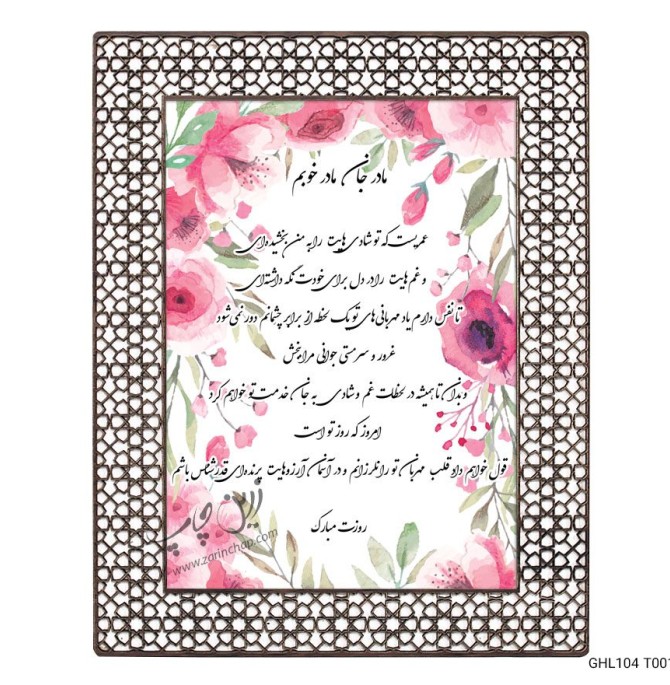 مادر جان مادر خوبم
عمریست که تو شادی هایت را به من بخشیده‌ای
و غم هایت را در دل برای خودت نگه داشته‌ای
تا نفس دارم یاد مهربانی های تو یک لحظه از برابر چشمانم دور نمی شود
غرور و سرمستی جوانی مرا ببخش
و بدان تا همیشه در لحظات غم و شادی به جان خدمت تو خواهم کرد
امروز که روز تو است
قول خواهم داد قلب مهربان تو را نلرزانم و در آسمان آرزوهایت پرنده‌ای قدرشناس باشم
روزت مبارک
زرین چاپ
www.zarinchap.com
GHL104 T001